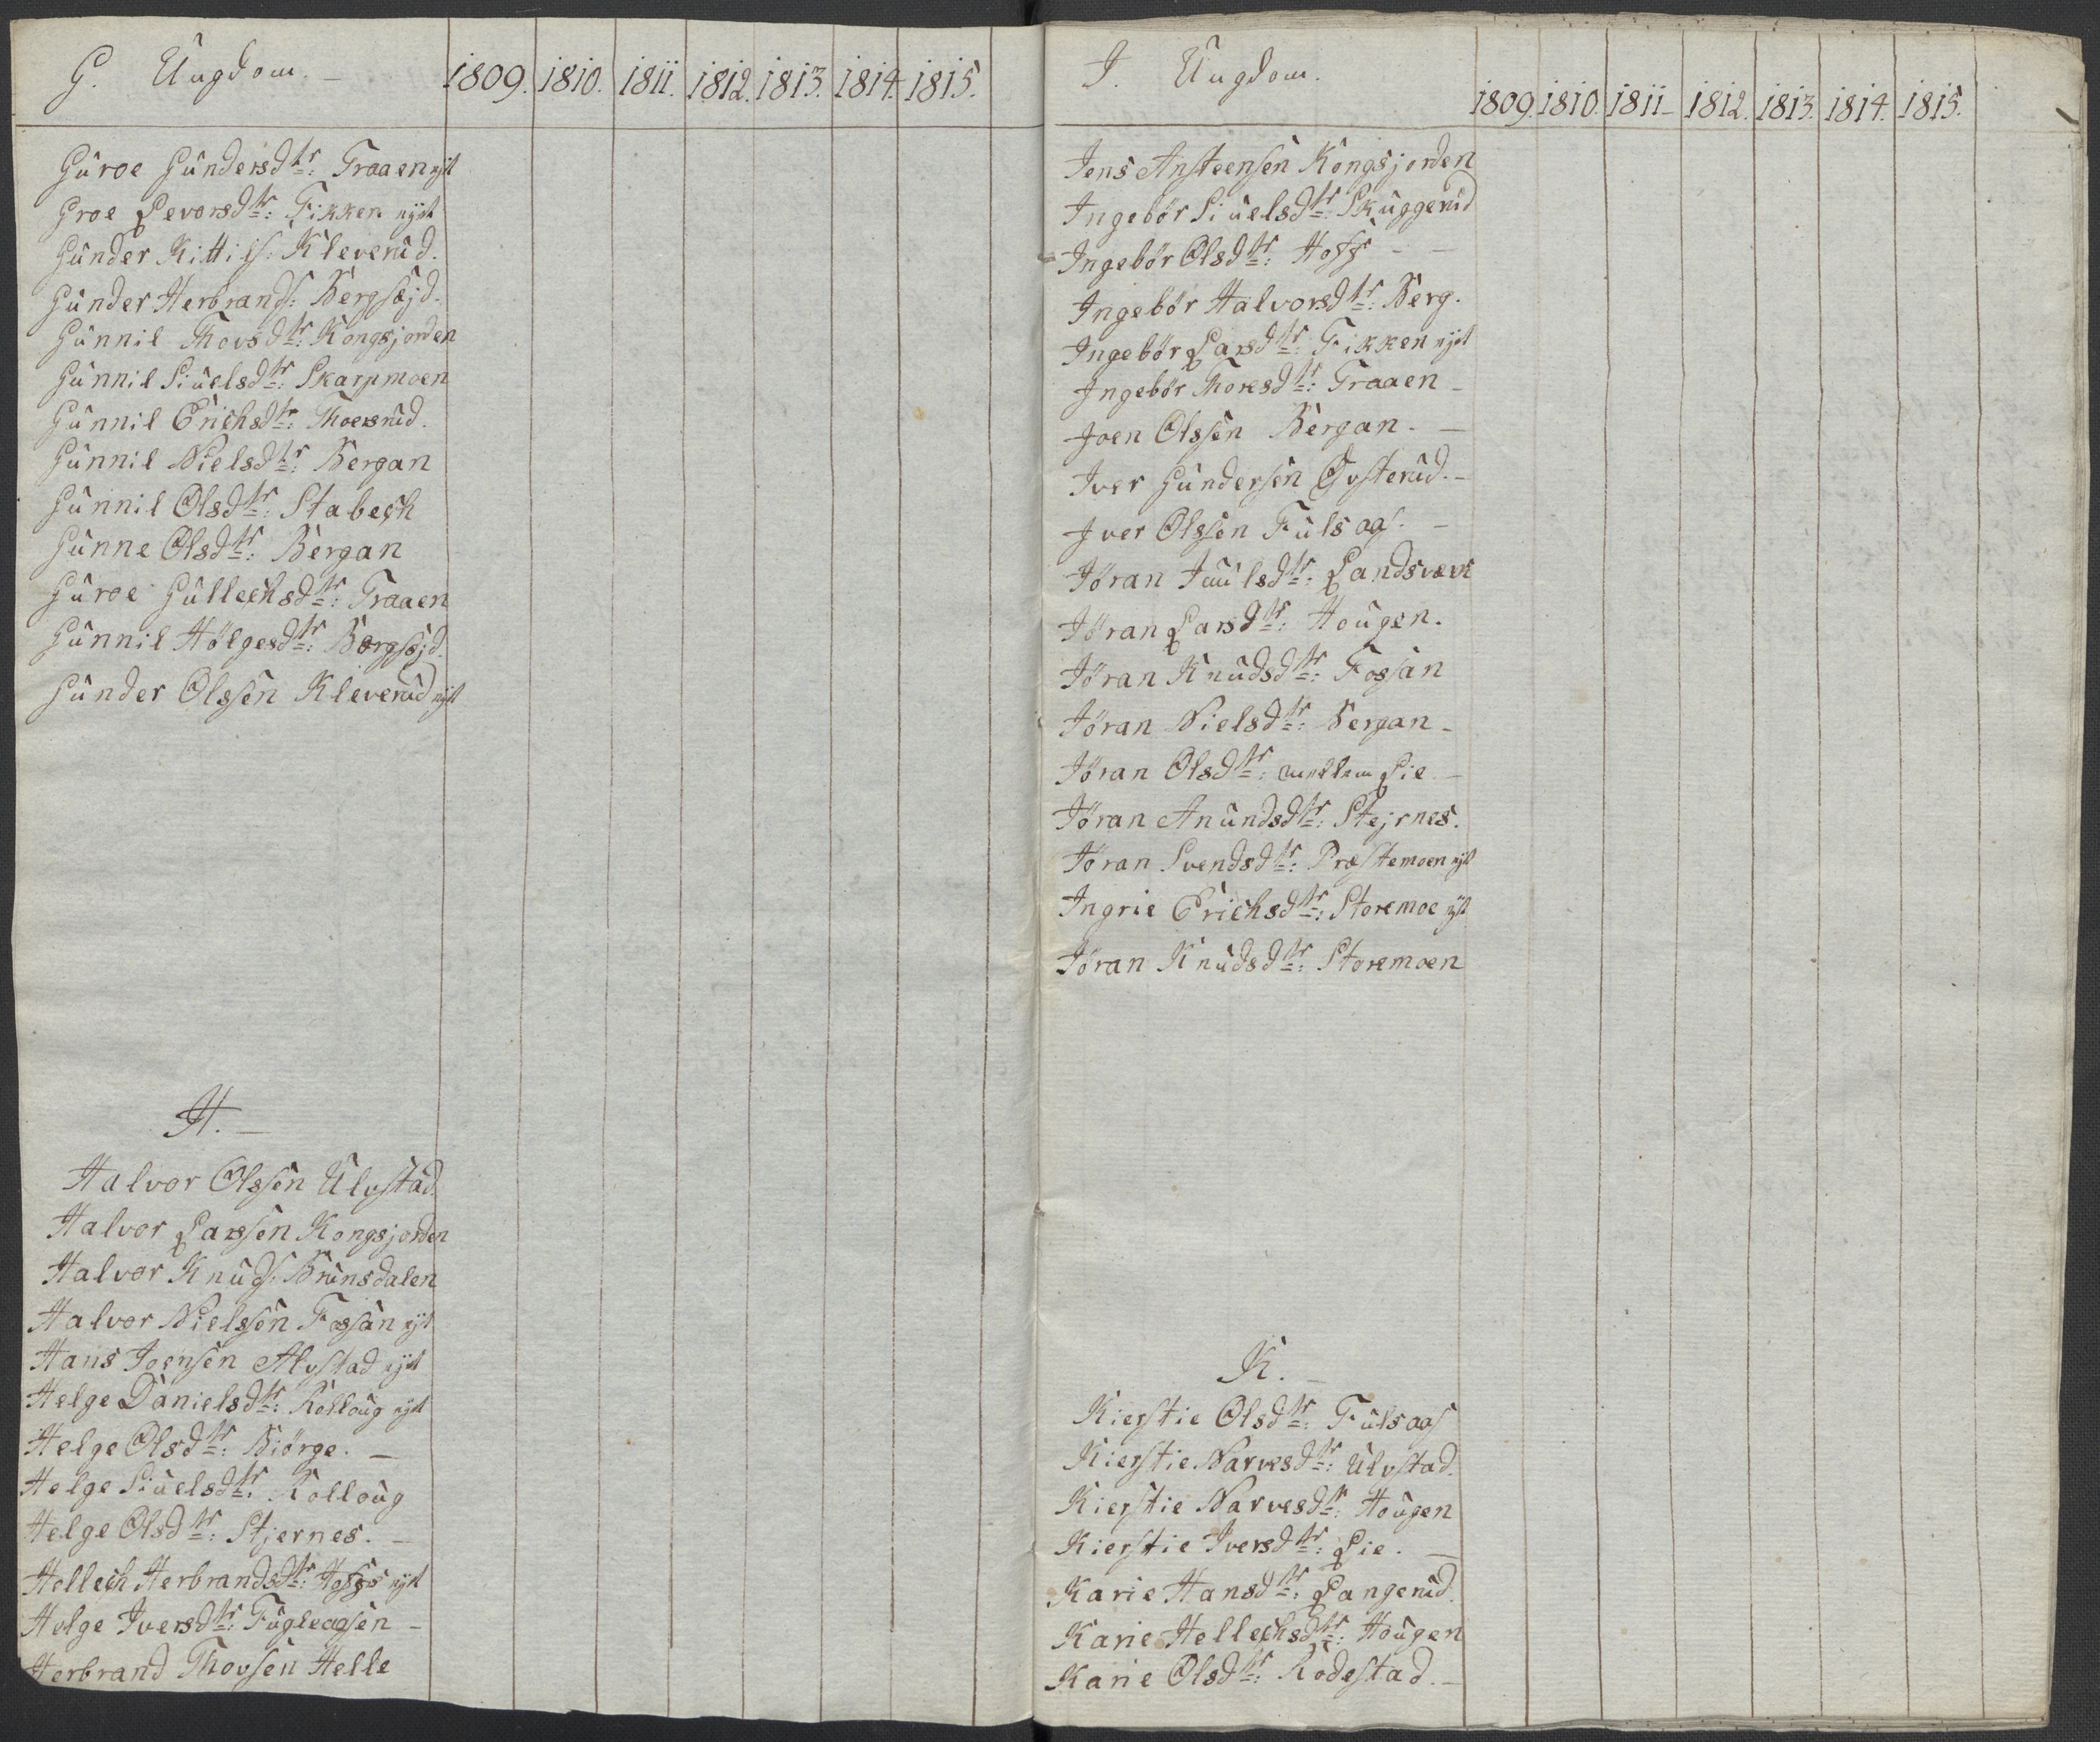 G. Ungdom. –
1809. 1810. 1811. 1812. 1813. 1814. 1815.
Guroe Gundersdtr: Traaen nyt
Groe Levorsdtr: Fikken nyt
Gunder Kittils: Kleverud.
Gunder Herbrands: Bergsejd.
Gunnil Thovsdtr: Kongsjorden
Gunnil Siuelsdtr: Skarpmoen
Gunnil Erichsdtr: Thoersrud.
Gunnil Nielsdtr: Bergan
Gunnil Olsdtr: Stabech
Gunne Olsdtr: Bergan
Guroe Gullechsdtr: Traaen
Gunnil Hølgesdtr: Bergsejd.
Gunder Olssen Kleverud nyt
H. –
Halvor Olssen Ulvstad.
Halvor Larssen Kongsjorden
Halvor Knuds: Brunsdalen
Halvor Nielssen Fossan nyt
Hans Joensen Alvstad nyt
Helge Danielsdtr: Rolloug nyt
Helge Olsdtr: Biørge. –
Helge Siuelsdtr: Rolloug
Helge Olsdtr: Stjernes. –
Hellech Herbrandsdtr: nyt
Helge Iversdtr: Fugleaasen –
Herbrand Thovsen Helle
I. Ungdom.
1809. 1810. 1811 – 1812. 1813. 1814. 1815.
Jens Ansteensen Kongsjorden
Ingebør Siuelsdtr: Skuggerud
Ingebør Olsdtr: Hoff – –
Ingebør Halvorsdtr: Berg.
Ingebør Larsdtr: Fikken nyt
Ingebør Thoresdtr: Traaen –
Joen Olssen Bergan. –
Iver Gundersen Øvsterud. –
Iver Olssen Fulsaas. –
Jøran Juulsdtr: Landsværk
Jøran Larsdtr: Hougen.
Jøran Knudsdtr: Fossan
Jøran Nielsdtr: Bergan –
Jøran Olsdtr: mellem Lie. –
Jøran Anundsdtr: Stejrnes.
Jøran Svendsdtr: Præstemoen nyt
Ingrie Erichsdtr: Storemoe nyt
Jøran Knudsdtr: Storemoen
K. –
Kierstie Olsdtr: Fulsaas
Kierstie Narvesdtr: Ulvstad.
Kierstie Narvesdtr: Hougen
Kierstie Iversdtr: Lie. –
Karie Hansdtr: Langerud.
Karie Hellechsdtr: Hougen
Karie Olsdtr: Rodestad. –